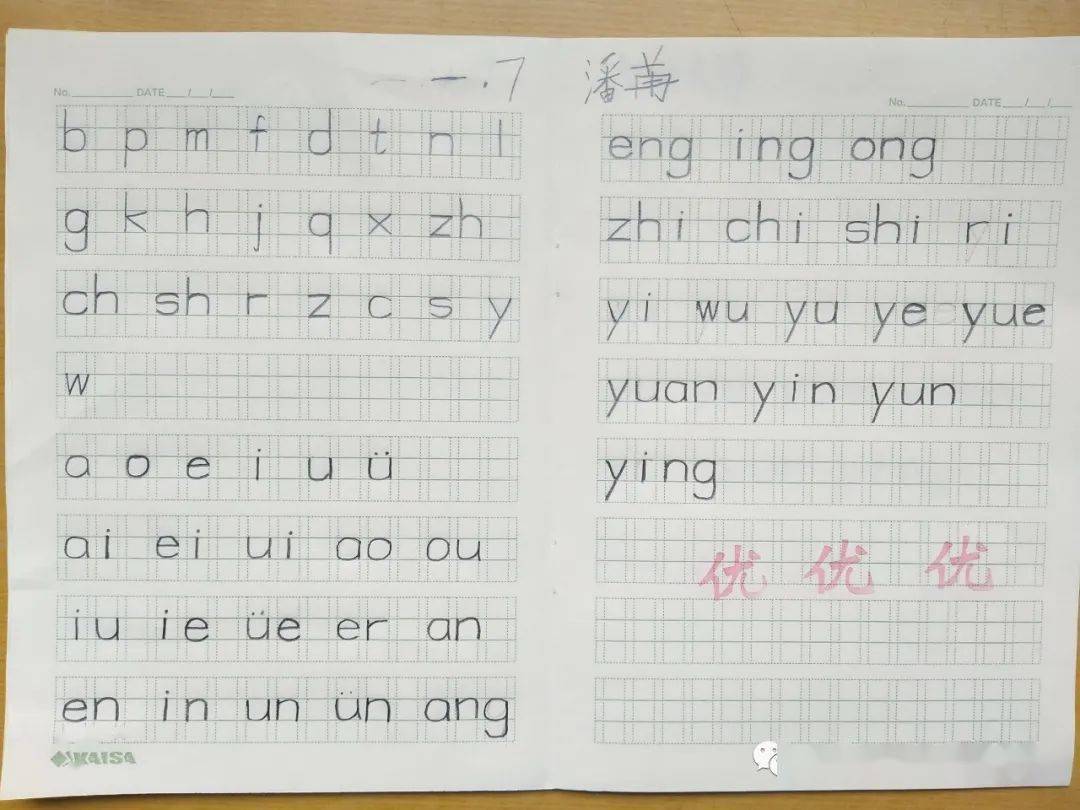 一.7 潘苒
No. DATE / /
b p m f d t n l
g k h j q x zh
ch sh r z c s y
w
a o e i u ü
ai ei ui ao ou
iu ie üe er an
en in un ün ang
KAISA
No. DATE / /
eng ing ong
zhi chi shi ri
yi wu yu ye yue
yuan yin yun
ying
优 优 优